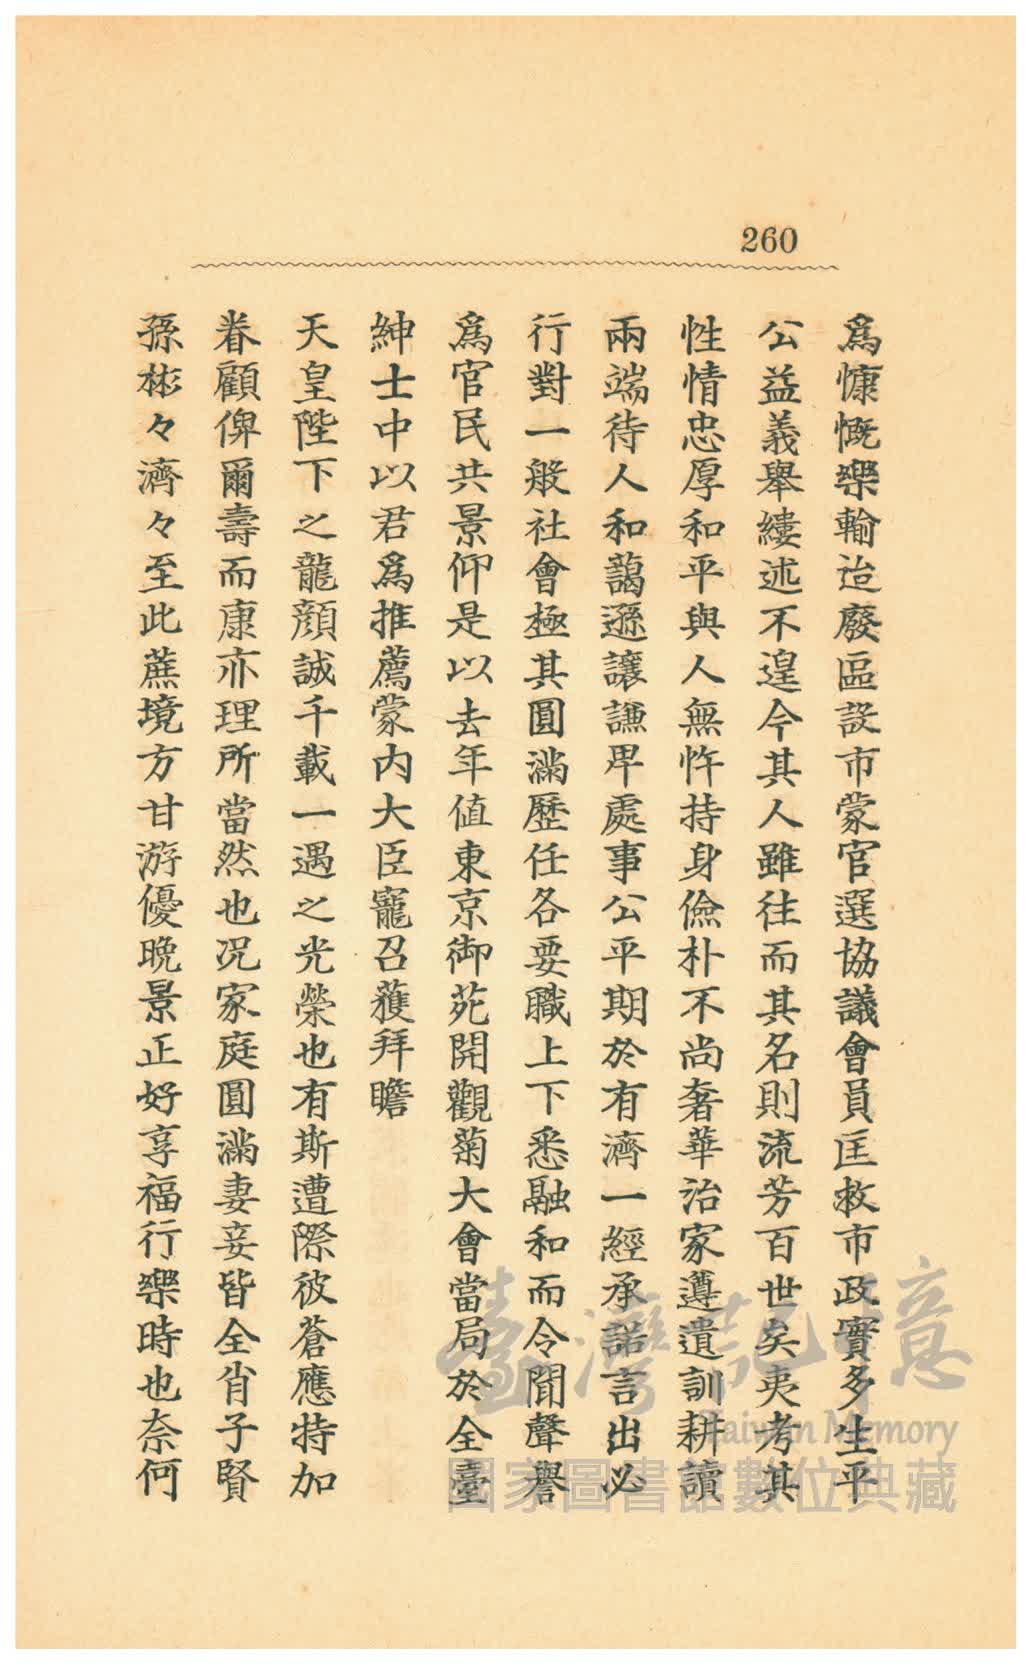 260
爲慷慨樂輸迨廢區設市蒙官選協議會員匡救市政實多生平
公益義舉縷述不遑今其人雖往而其名則流芳百世矣夷考其
性情忠厚和平與人無忤持身儉朴不尚奢華治家遵遺訓耕讀
兩端待人和藹遜讓謙卑處事公平期於有濟一經承諾言出必
行對一般社會極其圓滿歷任各要職上下悉融和而令聞聲譽
爲官民共景仰是以去年值東京御苑開觀菊大會當局於全臺
紳士中以君爲推薦蒙內大臣寵召獲拜瞻
天皇陛下之龍顏誠千載一遇之光榮也有斯遭際彼蒼應特加
眷顧俾爾壽而康亦理所當然也况家庭圓滿妻妾皆全肖子賢
孫彬々濟々至此蔗境方甘游優晚景正好享福行樂時也奈何
臺灣記憶
Taiwan Memory
國家圖書館數位典藏